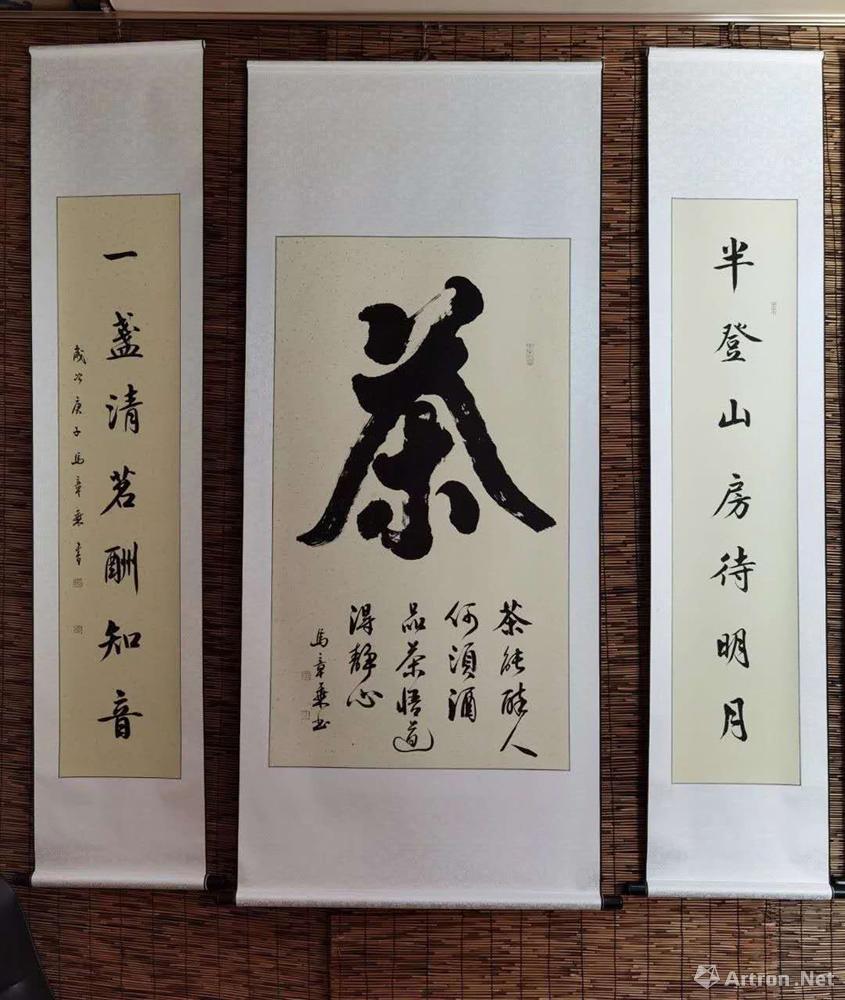 半登山房待明月
茶
茶能醉人
何须酒
品茶悟道
得静心
马章乘书
一盏清茗酬知音
岁次庚子马章乘书
Artron.Net